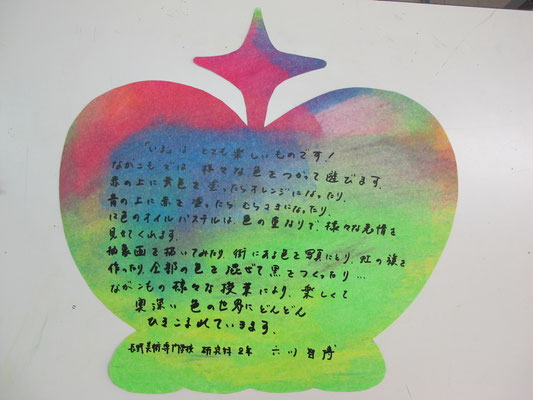 「いろ」は とても楽しいものです!
ながこもでは 様々な色をつかって遊びます。
赤の上に黄色を塗ったらオレンジになったり、
青の上に赤を塗ったらむらさきになったり、
12色のオイルパステルは、色の重なりで、様々な表情を
見せてくれます。
抽象画を描いてみたり、街にある色を写真にとり、虹の旗を
作ったり、全部の色を混ぜて黒をつくったり…
ながこもの様々な授業により、楽しくて
奥深い 色の世界にどんどん
ひきこまれていきます。
長野美術専門学校 研究科 2年 六川